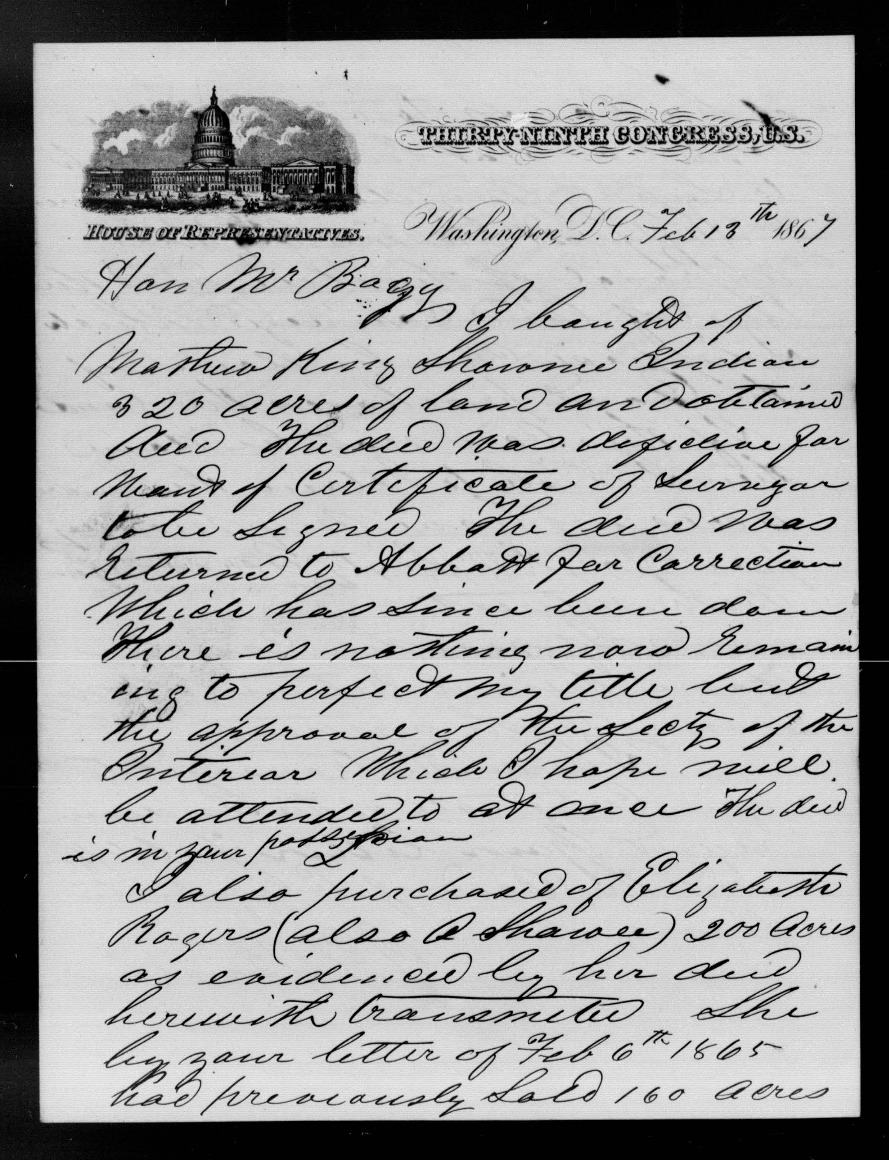 THIRTY-NINTH CONGRESS, U.S.
HOUSE OF REPRESENTATIVES.
Washington, D.C. Feb 13th 1867
Hon Mr Bogy
I bought of
Mathew King Shawnee Indian
320 acres of land and obtained
deed The deed was defective for
want of Certificate of Surveyor
to be signed The deed was
returned to Abbott for Correction
Which has since been done
There is nothing now remain
ing to perfect my title but
the approval of the Secty of the
Interior Which I hope will
be attended to at once The deed
is in your possession
I also purchased of Elizabeth
Rogers (also a Shawee) 200 Acres
as evidenced by her deed
herewith transmitted She
by your letter of Feb 6th 1865
had previously Sold 160 acres